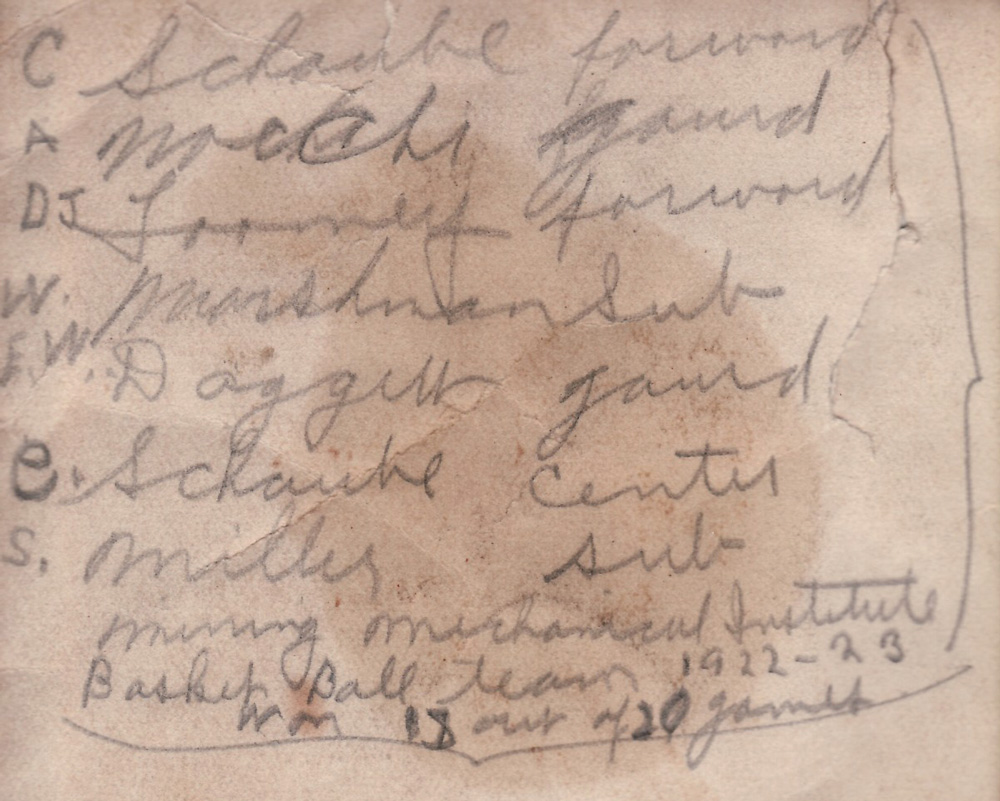 C Schaube forward
A Mocchi gaurd
DJ Loomey forward
W. Marshman Sub
F.W. Daggett gaurd
C. Schaube center
S. Miller sub
Mining Mechanical Institute
Basket Ball team 1922-23
Won 18 out of 20 games